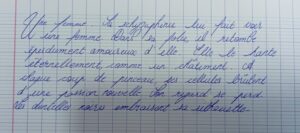 Une femme. La schizophrénie lui fait voir
une femme. Dans sa folie, il retombe
éperdument amoureux d'elle. Elle le hante
éternellement, comme un châtiment. A
chaque coup de pinceau, ses cellules brûlent
d'une passion nouvelle. Son regard se perd.
Les dentelles noires embrassent sa silhouette